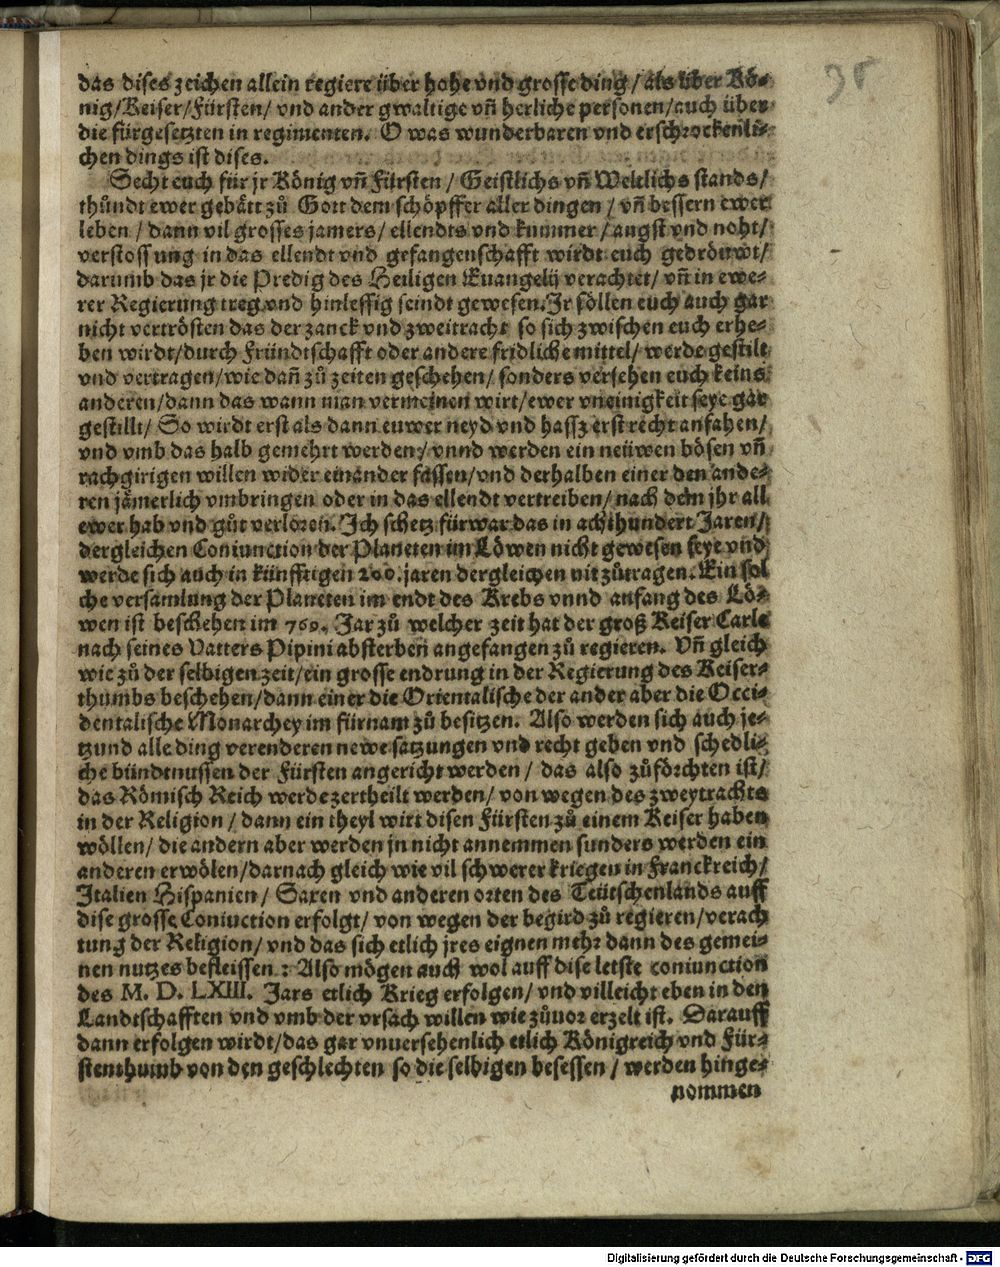 38
das dises zeichen allein regiere über hohe vnd grosse ding / als über Kö-
nig/Keiser/Fürsten/ vnd ander gwaltige vñ herliche personen/auch über
die fürgesetzten in regimenten. O was wunderbaren vnd erschrockenli-
chen dings ist dises.
Secht euch für jr König vñ Fürsten / Geistlichs vñ Weltlichs stands/
thůndt ewer gebätt zů Gott dem schöpffer aller dingen / vñ bessern ewer
leben / dann vil grosses jamers/ ellendts vnd kummer / angst vnd noht/
verstossung in das ellendt vnd gefangenschafft wirdt euch gedröuwt/
darumb das jr die Predig des Heiligen Euangelij verachtet/ vñ in ewe-
rer Regierung treg vnd hinlessig seindt gewesen. Jr söllen euch auch gar
nicht vertrösten das der zanck vnd zweitracht so sich zwischen euch erhe-
ben wirdt/durch Fründtschafft oder andere fridliche mittel/ werde gestilt
vnd vertragen/wie dañ zů zeiten geschehen/ sonders versehen euch keins
anderen/dann das wann man vermeinen wirt/ewer vneinigkeit seye gar
gestillt/ So wirdt erst als dann euwer neyd vnd hassz erst recht anfahen/
vnd vmb das halb gemehrt werden/ vnnd werden ein neüwen bösen vñ
rachgirigen willen wider einander fassen/vnd derhalben einer den ande-
ren jämerlich vmbringen oder in das ellendt vertreiben/ nach dem jhr all
ewer hab vnd gůt verloren. Ich schetz fürwar das in achthundert Jaren/
dergleichen Coniunction der Planeten im Löwen nicht gewesen seye vnd
werde sich auch in künfftigen 200. jaren dergleichen nit zůtragen. Ein sol
che versamlung der Planeten im endt des Krebs vnnd anfang des Lö-
wen ist beschehen im 769. Jar zů welcher zeit hat der groß Keiser Carle
nach seines Vatters Pipini absterben angefangen zů regieren. Vñ gleich
wie zů der selbigen zeit/ein grosse endrung in der Regierung des Keiser-
thumbs beschehen/dann einer die Orientalische der ander aber die Occi-
dentalische Monarchey im fürnam zů besitzen. Also werden sich auch je-
tzund alle ding verenderen newe satzungen vnd recht geben vnd schedli-
che bündtnussen der Fürsten angericht werden / das also zůförchten ist/
das Römisch Reich werde zertheilt werden/ von wegen des zweytrachts
in der Religion / dann ein theyl wirt disen Fürsten zů einem Keiser haben
wöllen/ die andern aber werden jn nicht annemmen sunders werden ein
anderen erwölen/darnach gleich wie vil schwerer kriegen in Franckreich/
Italien Hispanien/ Saxen vnd anderen orten des Teütschenlands auff
dise grosse Coniuction erfolgt/ von wegen der begird zů regieren/verach
tung der Religion/ vnd das sich etlich jres eignen mehr dann des gemei-
nen nutzes befleissen : Also mögen auch wol auff dise letste coniunction
des M. D. LXIII. Jars etlich Krieg erfolgen/ vnd villeicht eben in den
Landtschafften vnd vmb der vrsach willen wie zůuor erzelt ist. Darauff
dann erfolgen wirdt/das gar vnuersehenlich etlich Königreich vnd Für-
stenthumb von den geschlechten so die selbigen besessen / werden hinge-
nommen
Digitalisierung gefördert durch die Deutsche Forschungsgemeinschaft - DFG